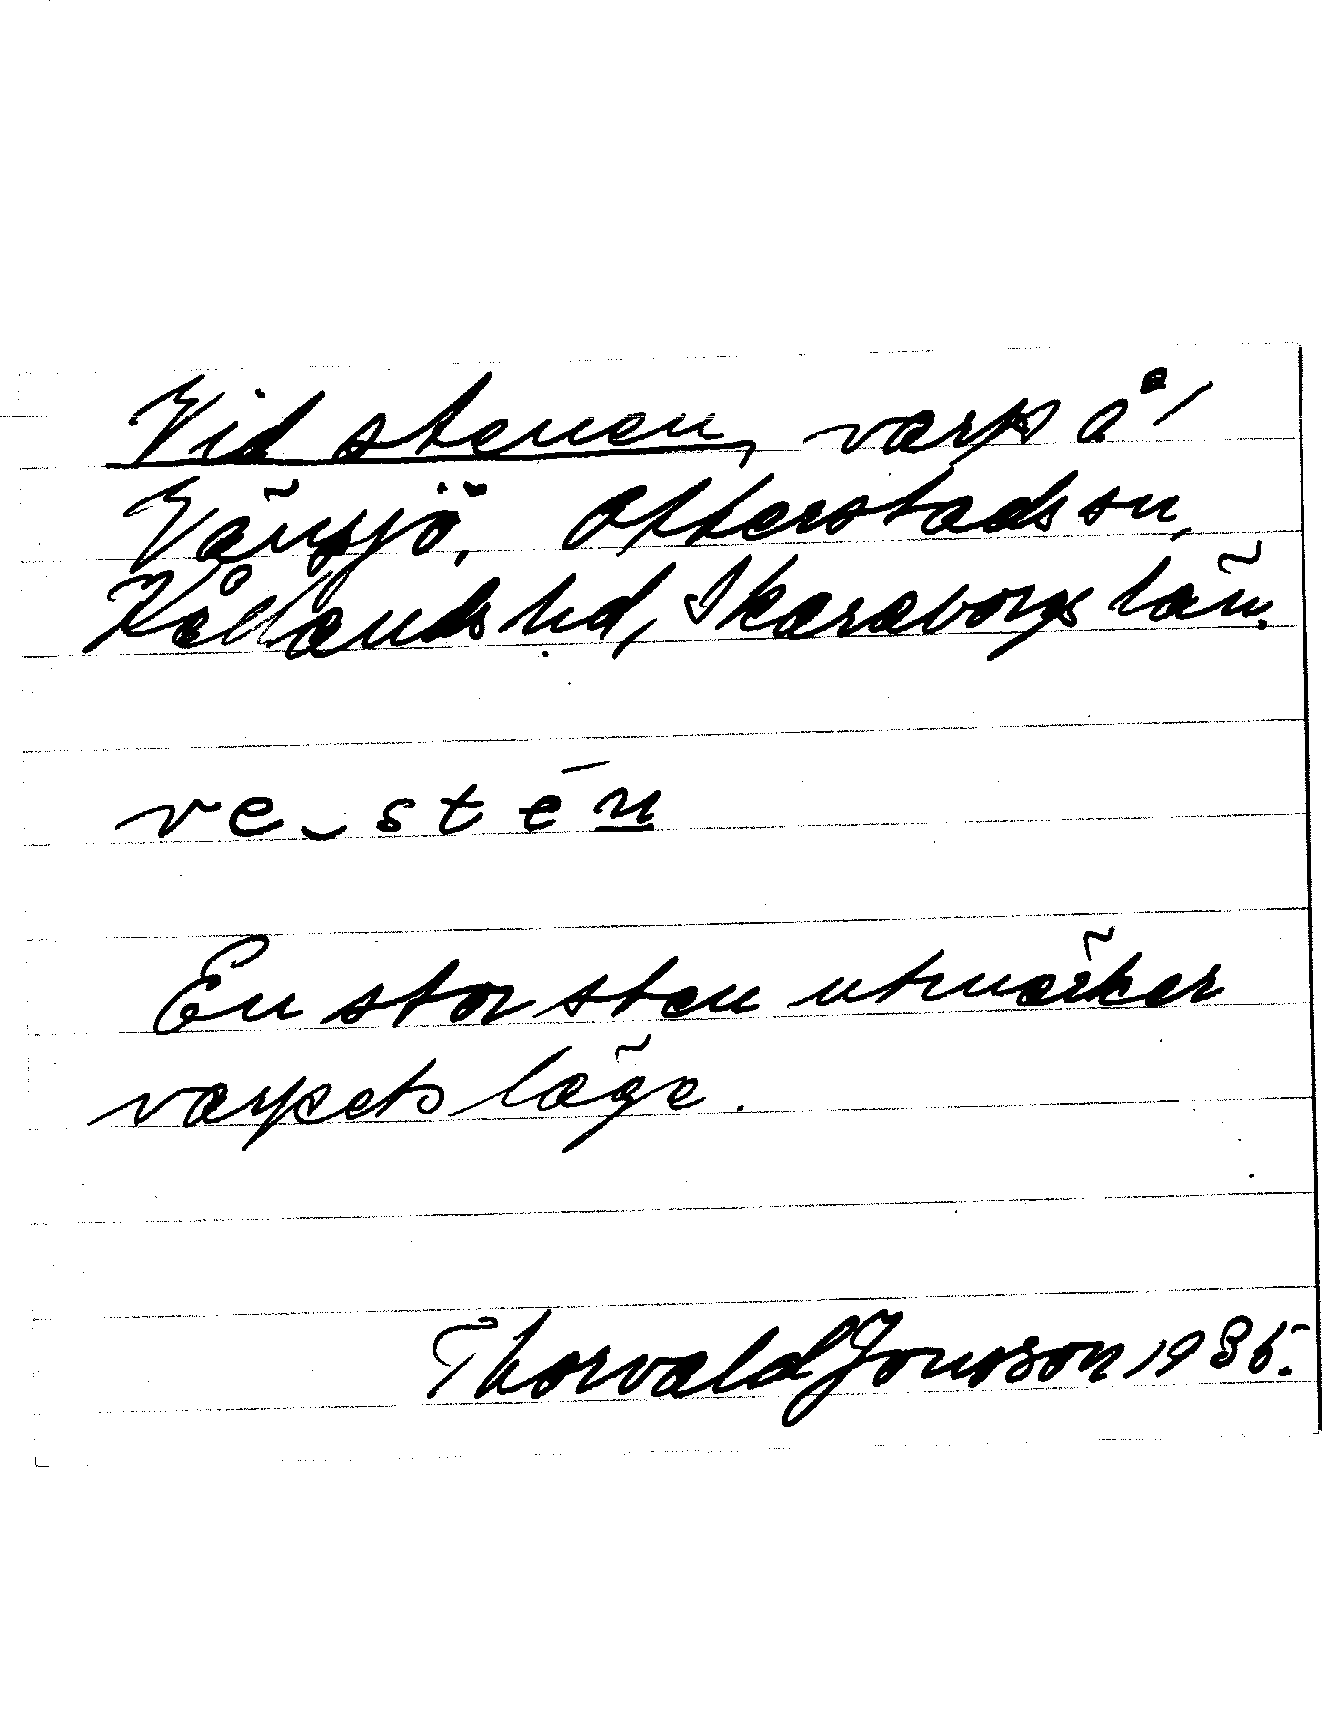 Vid stenen, varp å /
Vänsjö, Otterstads sn,
Kållands hd, Skaraborgs län.
ve_stēn
En stor sten utmärker
varpets läge.
Thorvald Jonsson 1935.